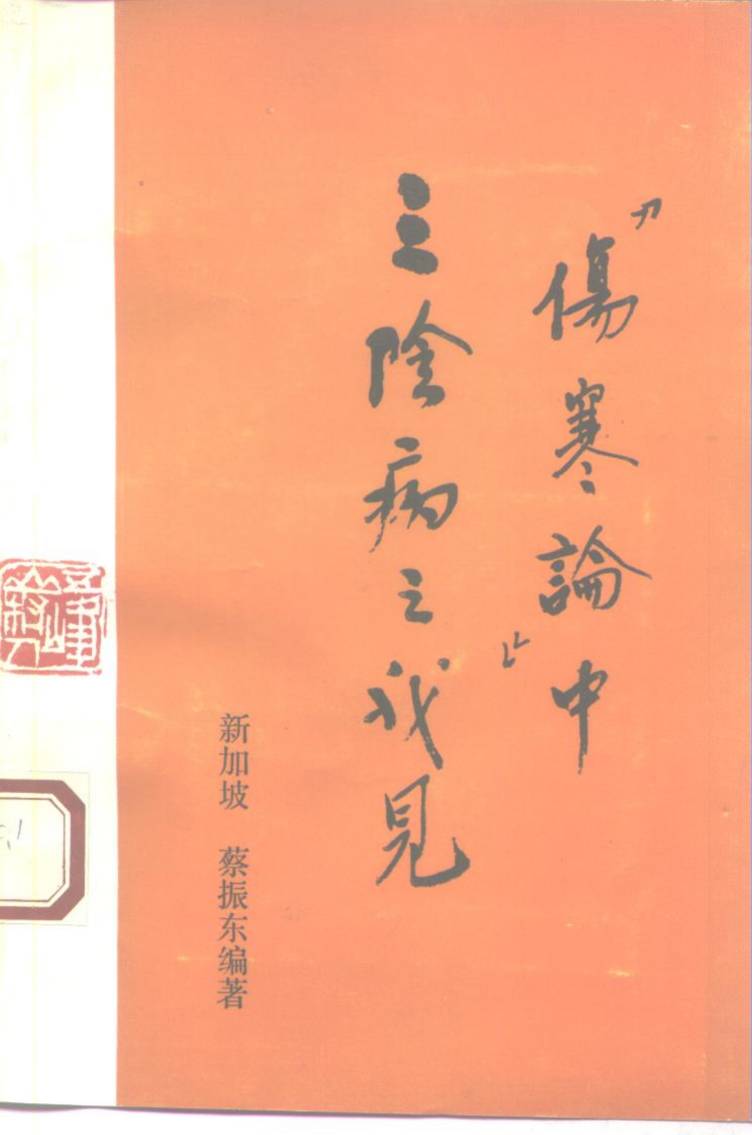 “傷寒論中”
三陰病之我見
新加坡 蔡振东编著